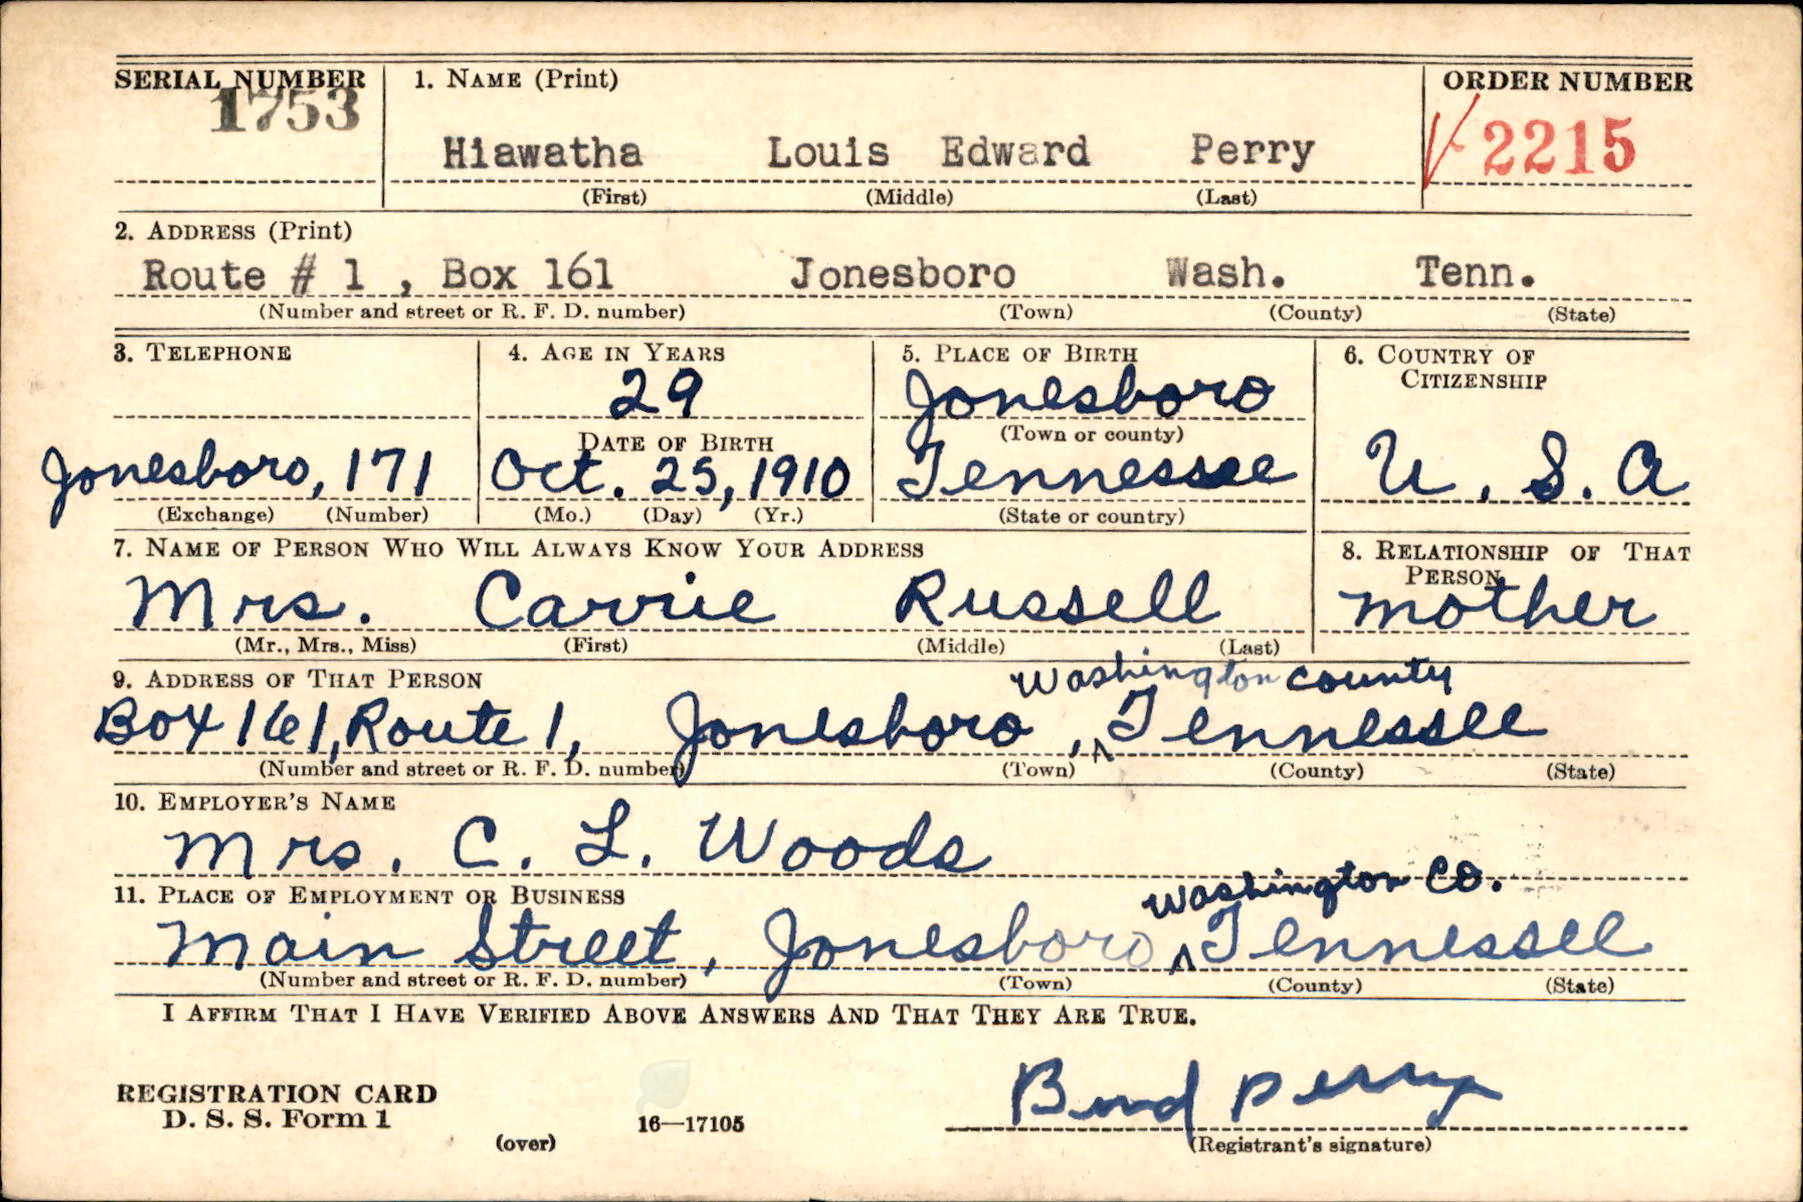 SERIAL NUMBER 1. NAME (Print) ORDER NUMBER
1753 Hiawatha Louis Edward Perry 2215
(First) (Middle) (Last)
2. ADDRESS (Print)
Route # 1 , Box 161 Jonesboro Wash. Tenn.
(Number and street or R. F. D. number) (Town) (County) (State)
3. TELEPHONE 4. AGE IN YEARS 5. PLACE OF BIRTH 6. COUNTRY OF
CITIZENSHIP
29 Jonesboro
DATE OF BIRTH (Town or county)
Jonesboro, 171 Oct. 25, 1910 Tennessee U. S. A
(Exchange) (Number) (Mo.) (Day) (Yr.) (State or country)
7. NAME OF PERSON WHO WILL ALWAYS KNOW YOUR ADDRESS 8. RELATIONSHIP OF THAT
PERSON
Mrs. Carrie Russell mother
(Mr., Mrs., Miss) (First) (Middle) (Last)
9. ADDRESS OF THAT PERSON Washington county
Box 161, Route 1, Jonesboro, ^ Tennessee
(Number and street or R. F. D. number) (Town) (County) (State)
10. EMPLOYER'S NAME
Mrs. C. L. Woods
11. PLACE OF EMPLOYMENT OR BUSINESS Washington Co.
Main Street, Jonesboro ^ Tennessee
(Number and street or R. F. D. number) (Town) (County) (State)
I AFFIRM THAT I HAVE VERIFIED ABOVE ANSWERS AND THAT THEY ARE TRUE.
Bud Perry
REGISTRATION CARD
D. S. S. Form 1 16—17105
(over) (Registrant's signature)